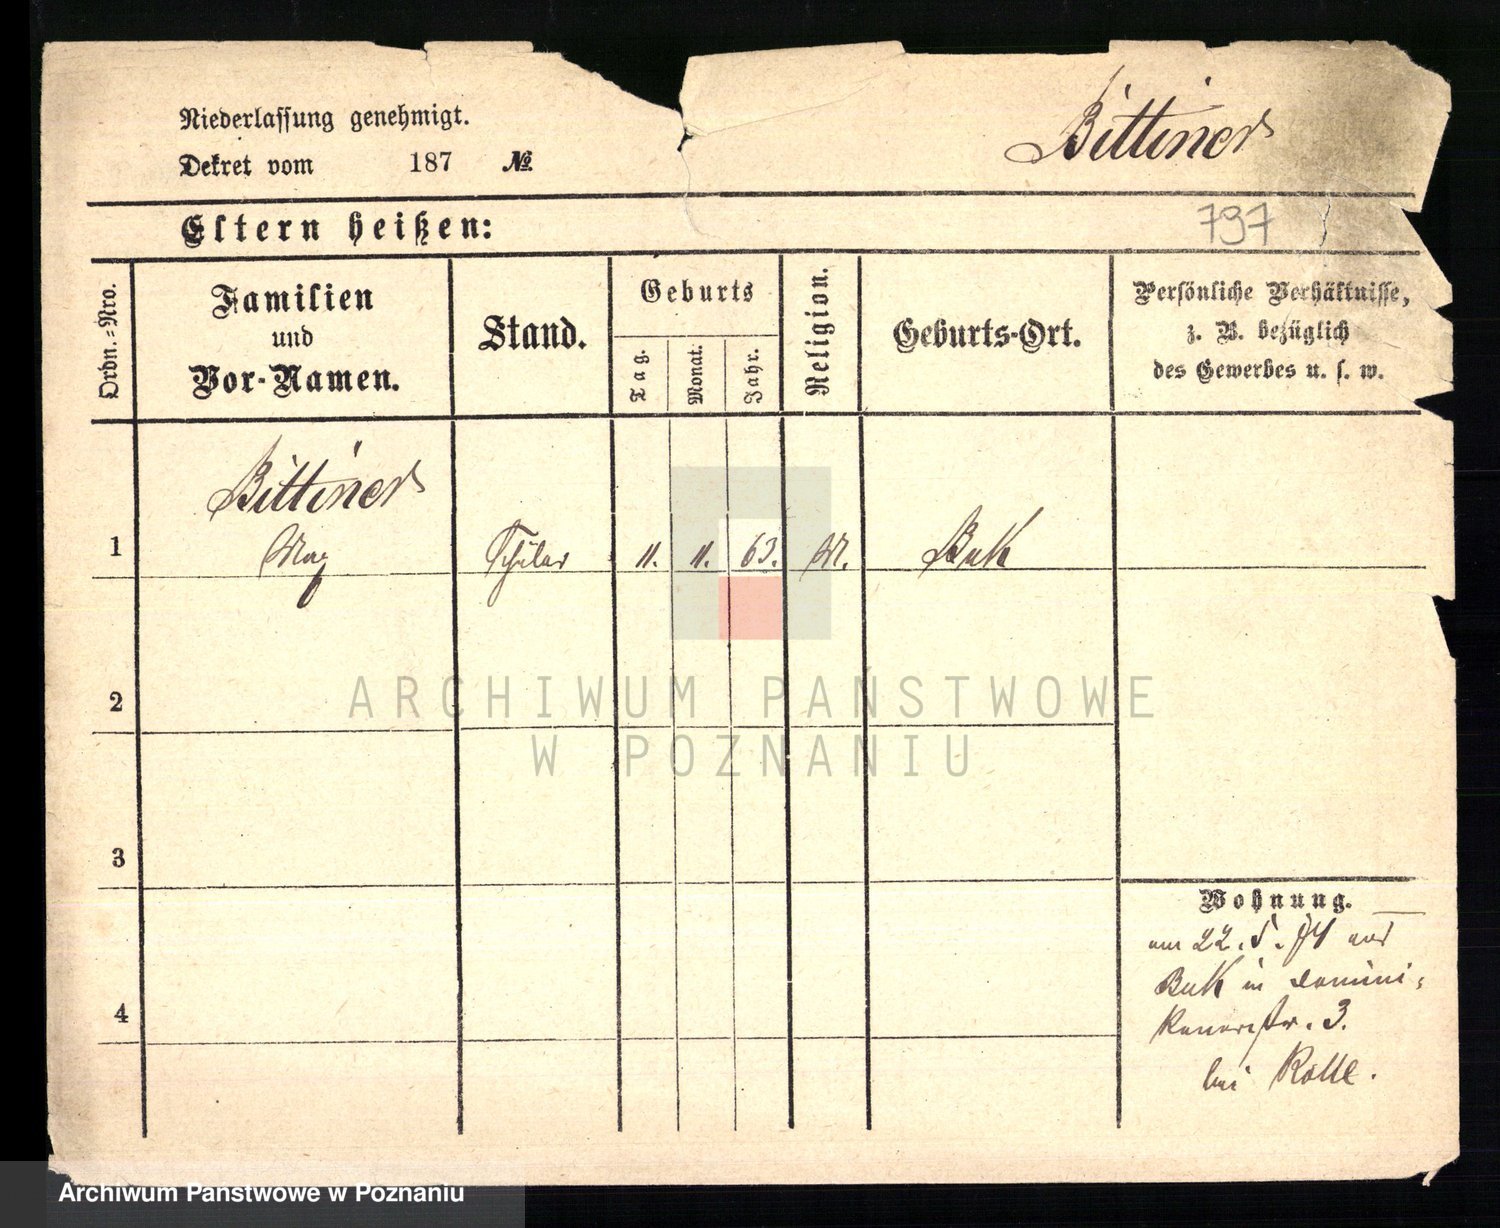 Niederlassung genehmigt.
Dekret vom 187 №
Bittiner
Eltern heißen:
797
Ordn.=Nro.
Familien
und
Vor-Namen.
Stand.
Geburts
Tag.
Monat.
Jahr.
Religion.
Geburts-Ort.
Persönliche Verhältnisse,
z. B. bezüglich
des Gewerbes u. s. w.
Bittiner
1 Max Schüler 11. 11. 63. M. Buk
2
3
4
Wohnung.
am 22.5.74 aus
Buk in Domini-
kanerstr. 3.
bei
ARCHIWUM PAŃSTWOWE
W POZNANIU
Archiwum Państwowe w Poznaniu